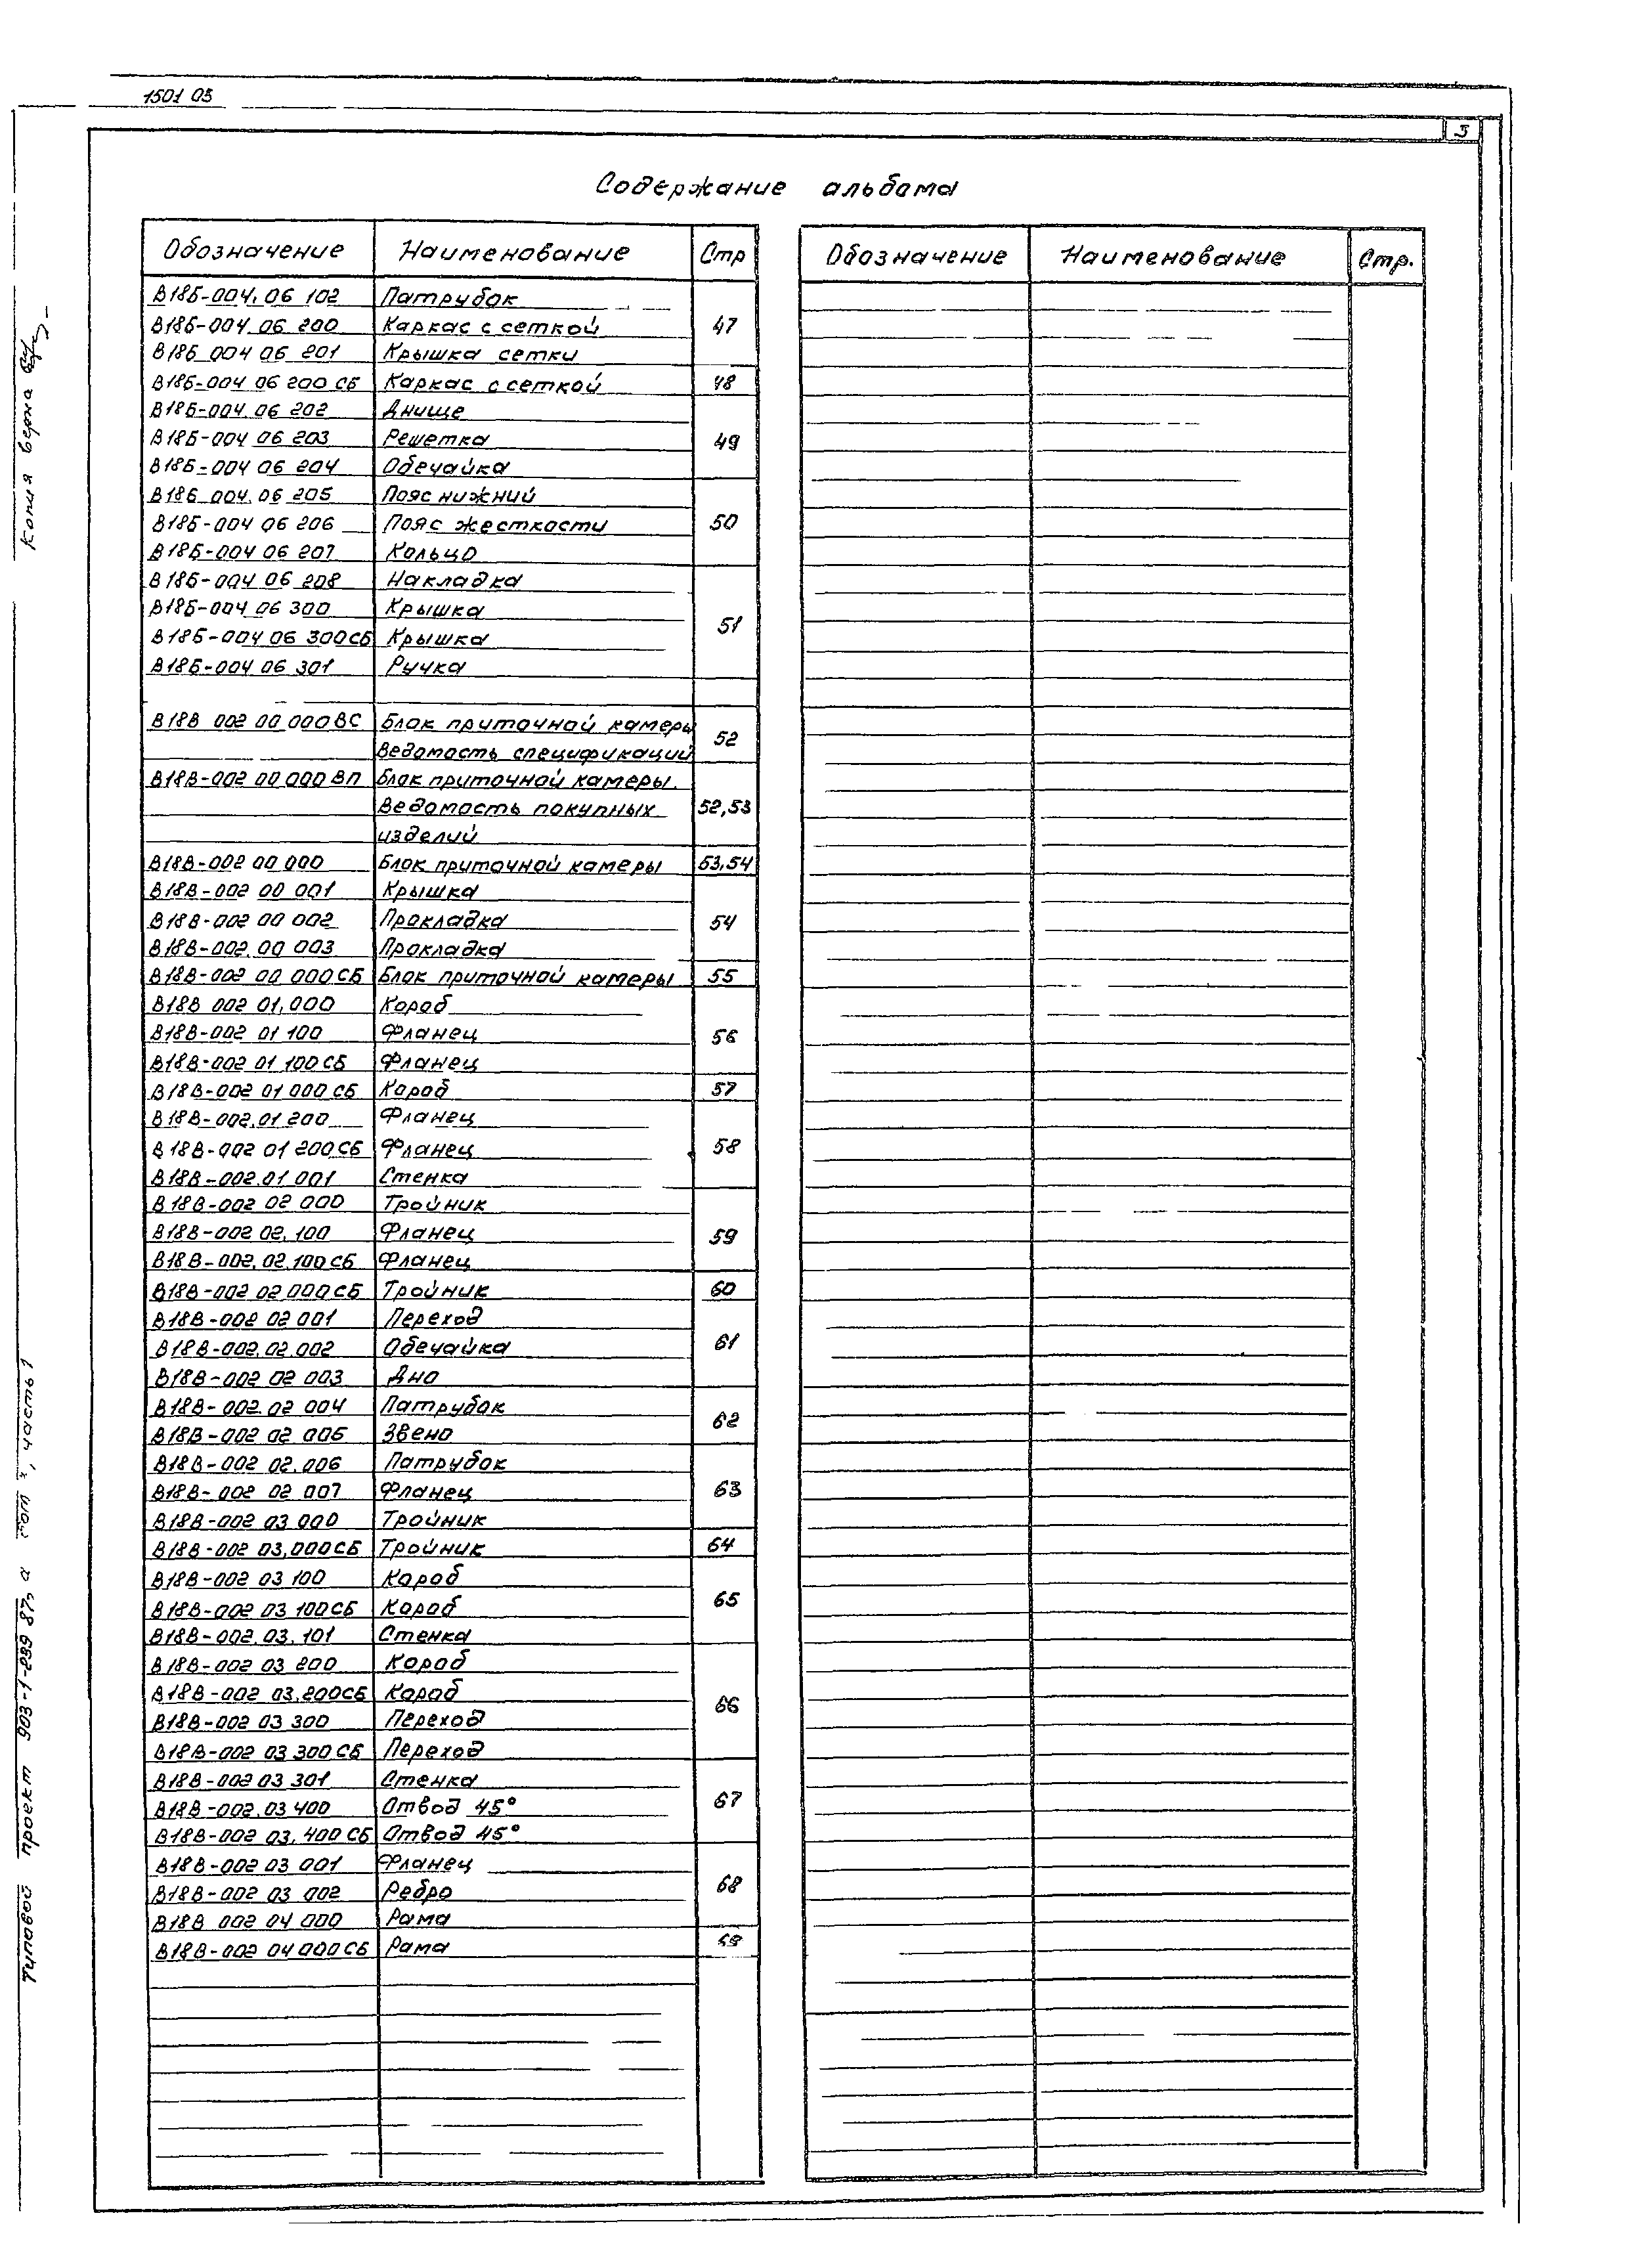 1501 05
5
Содержание альбома
Обозначение Наименование Стр
Обозначение Наименование Стр.
В18Б-004.06 102 Патрубок
В18Б-004 06 200 Каркас с сеткой 47
В18Б 004 06 201 Крышка сетки
В18Б-004 06 200 СБ Каркас с сеткой 48
В18Б-004.06 202 Днище
В18Б-004 06 203 Решетка 49
В18Б-004 06 204 Обечайка
В18Б 004.06 205 Пояс нижний
В18Б-004 06 206 Пояс жесткости 50
В18Б-004 06 207 Кольцо
В18Б-004 06 208 Накладка
В18Б-004 06 300 Крышка 51
В18Б-004 06 300СБ Крышка
В18Б-004 06 301 Ручка
В18В 002 00 000ВС Блок приточной камеры 52
Ведомость спецификаций
В18В-002 00 000 ВП Блок приточной камеры.
Ведомость покупных 52,53
изделий
В18В-002 00 000 Блок приточной камеры 53,54
В18В-002 00 001 Крышка
В18В-002 00 002 Прокладка 54
В18В-002.00 003 Прокладка
В18В-002 00 000СБ Блок приточной камеры 55
В18В 002 01,000 Короб
В18В-002 01 100 Фланец 56
В18В-002 01 100СБ Фланец
В18В-002 01 000 СБ Короб 57
В18В-002.01 200 Фланец
В18В-002 01 200СБ Фланец 58
В18В-002.01 001 Стенка
В18В-002 02 000 Тройник
В18В-002 02.100 Фланец 59
В18В-002.02.100СБ Фланец
В18В-002 02 000СБ Тройник 60
В18В-002 02 001 Переход
В18В-002.02.002 Обечайка 61
В18В-002 02 003 Дно
В18В-002.02 004 Патрубок 62
В18В-002 02 005 Звено
В18В-002 02.006 Патрубок
В18В-002 02 007 Фланец 63
В18В-002 03 000 Тройник
В18В-002 03,000СБ Тройник 64
В18В-002 03 100 Короб
В18В-002 03 100СБ Короб 65
В18В-002.03.101 Стенка
В18В-002 03 200 Короб
В18В-002 03.200СБ Короб 66
В18В-002 03 300 Переход
В18В-002 03 300СБ Переход
В18В-002 03 301 Стенка
В18В-002.03 400 Отвод 45° 67
В18В-002 03.400 СБ Отвод 45°
В18В-002 03 001 Фланец
В18В-002 03 002 Ребро 68
В18В 002 04 000 Рама
В18В-002 04 000СБ Рама 69
Копия верна
Типовой проект 903-1-239 87, часть 1